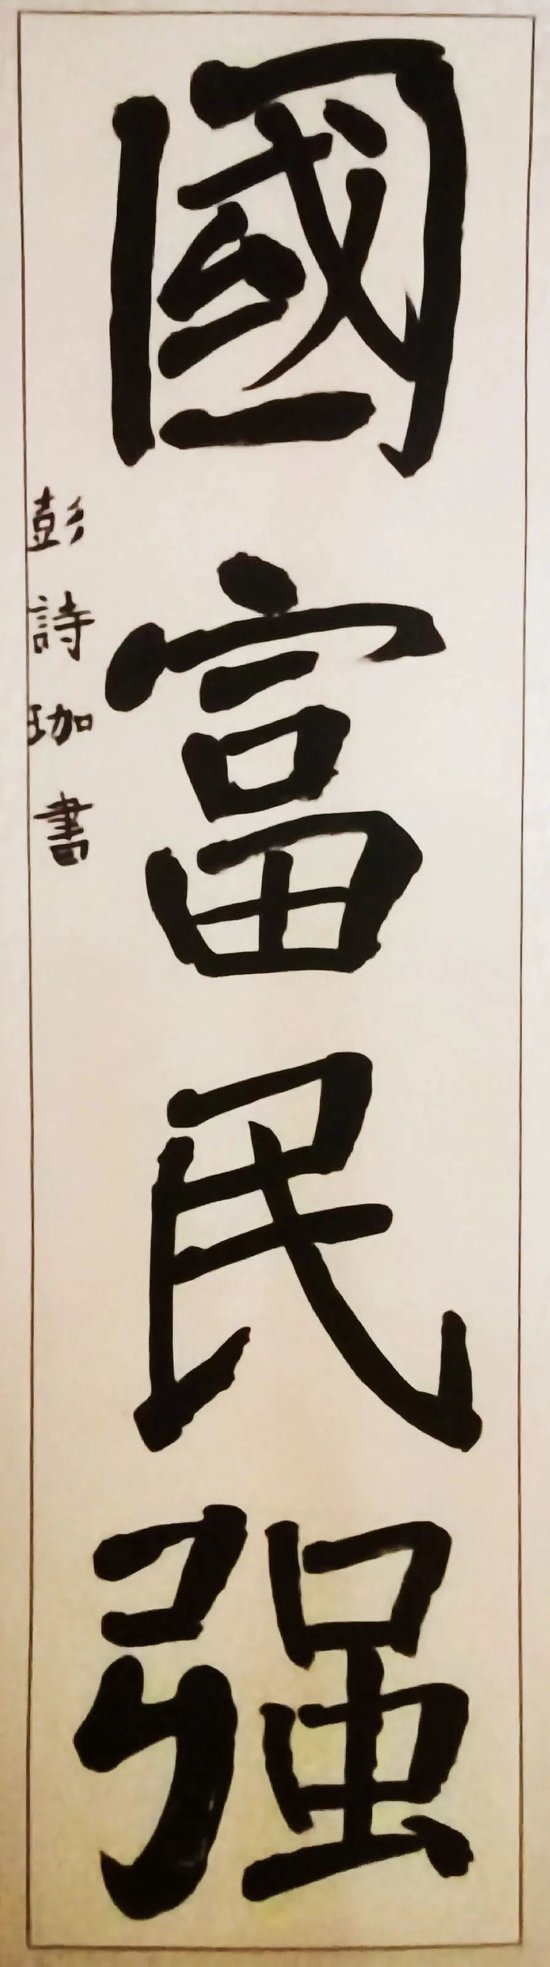 國富民强
彭詩珈書